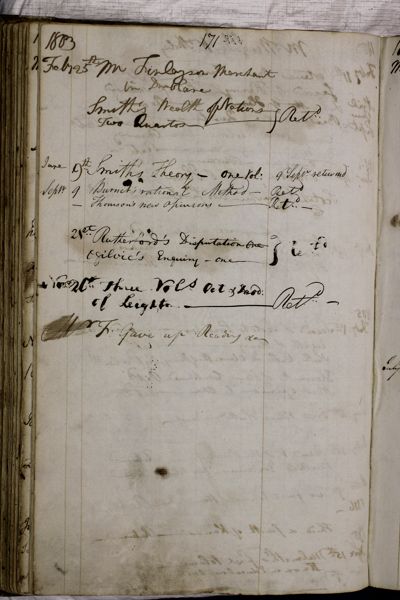 1803 171
Feby 25th Mr Finlayson Merchant
in Dunblane
Smith's Wealth of Nations
Two Quartos } Retd
June 9th Smith's Theory – one Vol: 9 Septr returned
Septr 9 Burnet's rational Method – Retd
– Thomson's new opinions – Retd
21st Rutherford's Disputation one
Ogilvie's Enquiry – one
26th three Vols Oct &
of Leighton Retd –
Mr F. Gave up Reading